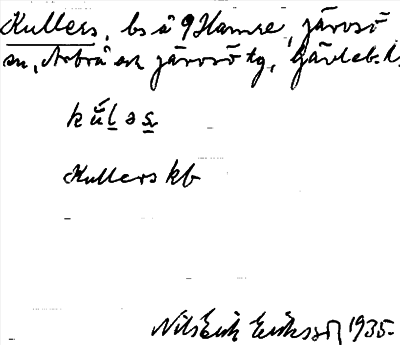 Kullers, bs å 9 Hamre, Järvsö
sn, Arbrå och Järvsö tg, Gävleb. l.
kúl̲ərs̲
Kullers kb
Nils Erik Eriksson 1935.